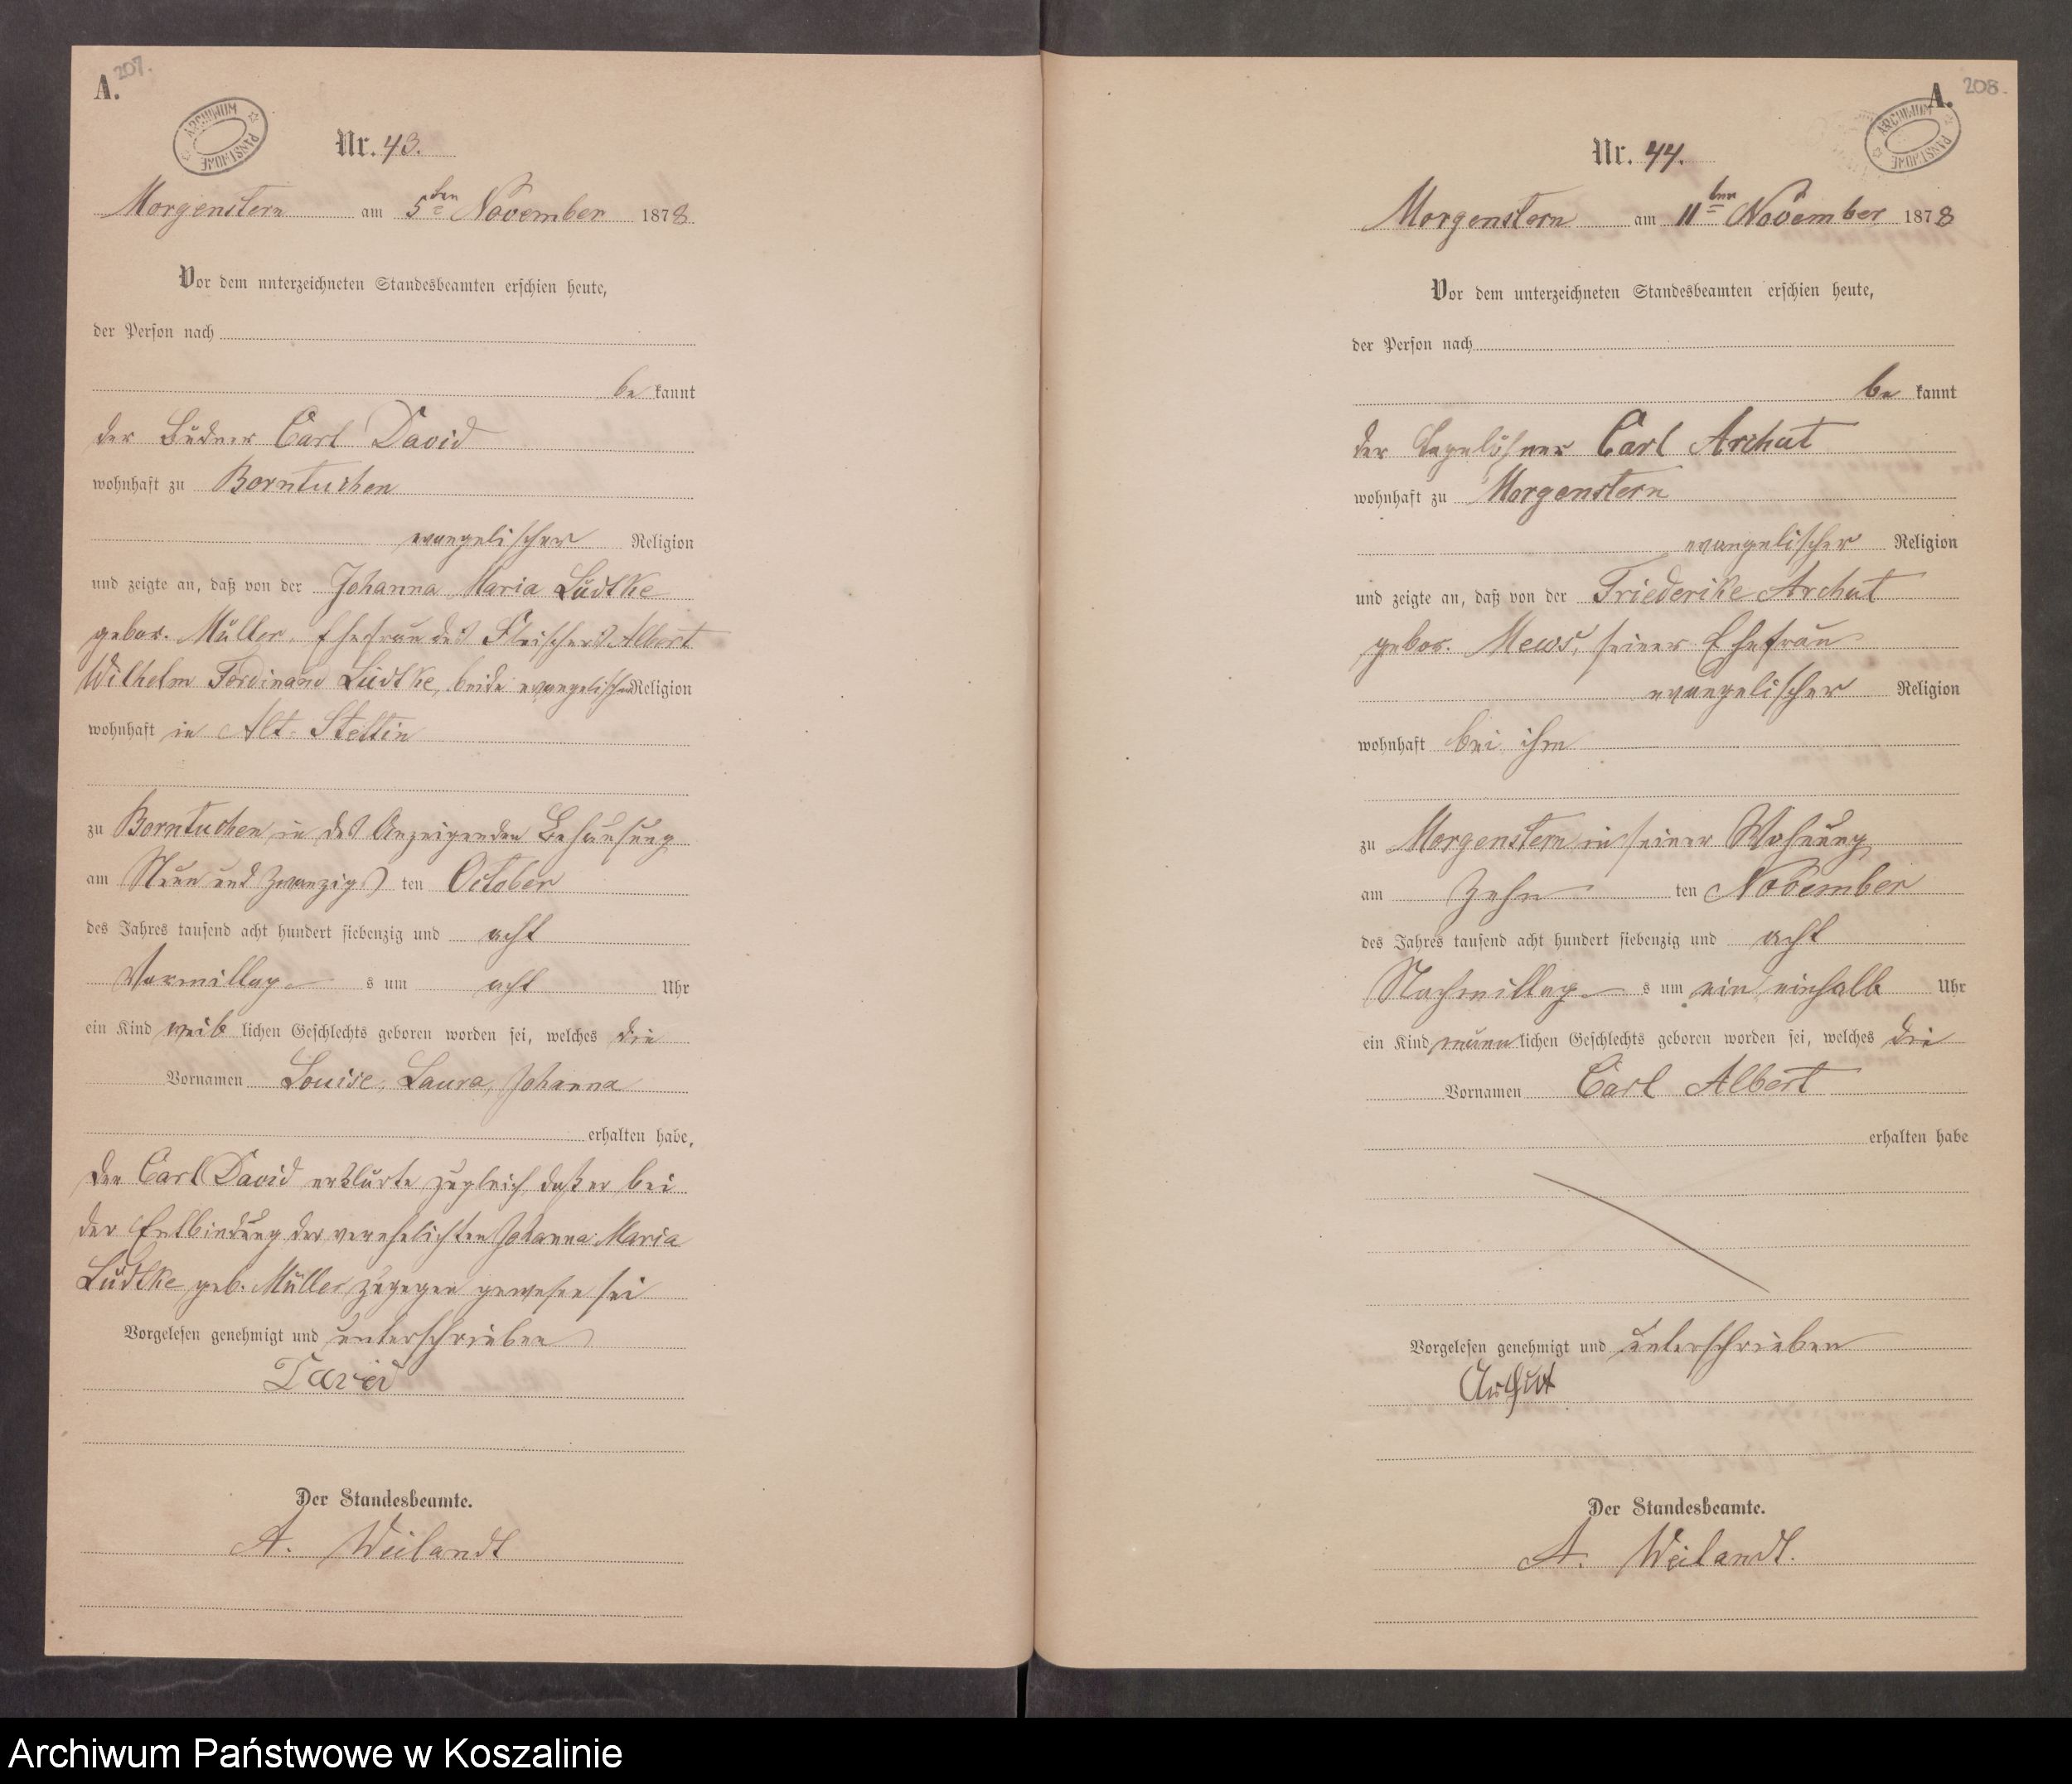 A. 207.
ARCHIWUM PAŃSTWOWE
Nr. 43.
Morgenstern am 5ten November 1878
Vor dem unterzeichneten Standesbeamten erschien heute,
der Person nach
be kannt
der Büdner Carl David
wohnhaft zu Borntuchen
evangelischer Religion
und zeigte an, daß von der Johanna Maria Lüdtke
gebor. Müller, Ehefrau des Fleischers Albert
Wilhelm Ferdinand Lüdtke, beide evangelischer Religion
wohnhaft in Alt-Stettin
zu Borntuchen in des Anzeigenden Behausung
am Neun und zwanzigs ten October
des Jahres tausend acht hundert siebenzig und acht
Vormittag s um acht Uhr
ein Kind weib lichen Geschlechts geboren worden sei, welches die
Vornamen Louise, Laura, Johanna
erhalten habe,
Der Carl David erklärte zugleich, daß er bei
der Entbindung der verehelichten Johanna Maria
Lüdtke geb. Müller zugegen gewesen sei
Vorgelesen genehmigt und unterschrieben
David
Der Standesbeamte.
A. Weilandt
A. 208.
ARCHIWUM PAŃSTWOWE
Nr. 44.
Morgenstern am 11ten November 1878
Vor dem unterzeichneten Standesbeamten erschien heute,
der Person nach
be kannt
der Tagelöhner Carl Archut
wohnhaft zu Morgenstern
evangelischer Religion
und zeigte an, daß von der Friederike Archut
gebor. Mews, seiner Ehefrau
evangelischer Religion
wohnhaft bei ihm
zu Morgenstern in seiner Wohnung
am Zehn ten November
des Jahres tausend acht hundert siebenzig und acht
Nachmittag s um ein einhalb Uhr
ein Kind männ lichen Geschlechts geboren worden sei, welches die
Vornamen Carl Albert
erhalten habe
Vorgelesen genehmigt und unterschrieben
Archut
Der Standesbeamte.
A. Weilandt.
Archiwum Państwowe w Koszalinie